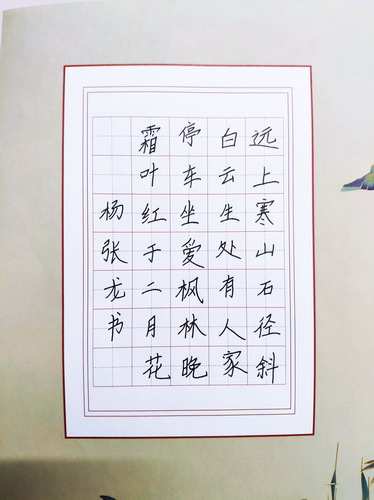 远上寒山石径斜
白云生处有人家
停车坐爱枫林晚
霜叶红于二月花
杨张龙书